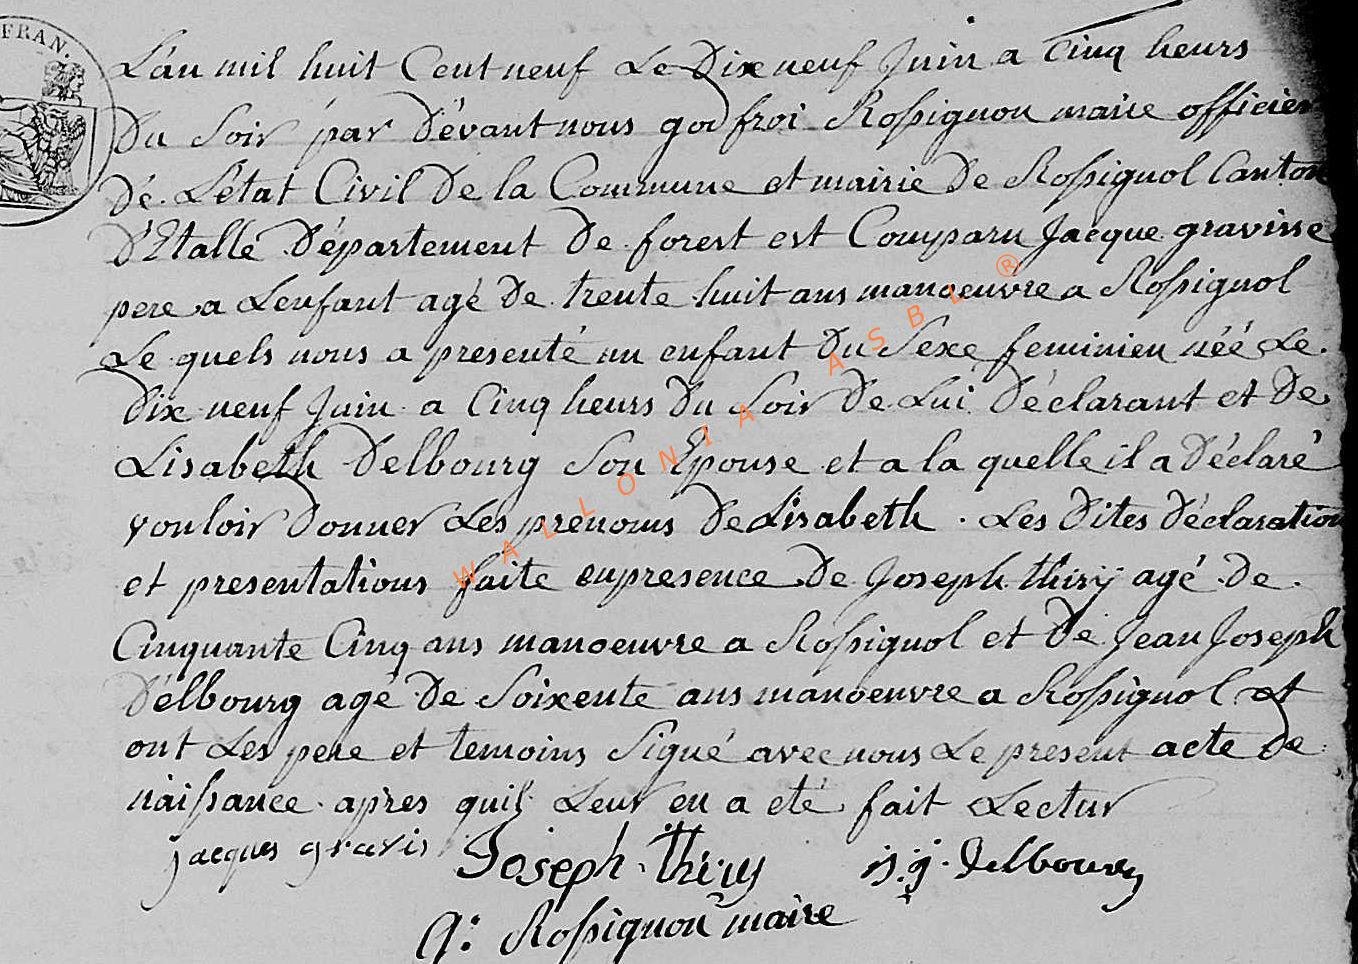 FRAN.
L'an mil huit Cent neuf Le Dix neuf Juin a Cinq heurs
Du Soir par Dévant nous godfroi Rossignon maire officier
Dé L'état Civil De la Commune et mairie De Rossignol Canton
D'Etallé Département De forest est Comparu Jacque gravisse
pere a Lenfant agé De trente huit ans manoeuvre a Rossignol
Le quels nous a presenté un enfant Du Sexe feminien néé Le
Dix neuf Juin a Cinq heurs Du Soir De Lui Déclarant et De
Lisabeth Delbourg Son Epouse et a la quelle il a Déclaré
vouloir Donner Les prenoms De Lisabeth . Les Dites Déclaration
et presentations faite en presence De Joseph thirÿ agé De
Cinquante Cinq ans manoeuvre a Rossignol et De Jean Joseph
Délbourg agé De Soixente ans manoeuvre a Rossignol et
ont Les pere et temoins Signé avec nous Le present acte De
naissance apres quil Leur en a eté fait Lectur
jacques gravis Joseph thiry j. j. delbourg
G: Rossignon maire
WALLONIA ASBL ®